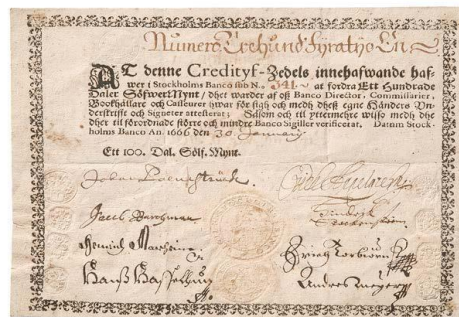 Numero Trehundfyratijo En
AT denne Credityf-Zedels innehafwande haf-
wer i Stockholms Banco sub N.o 341 at fordra Ett Hundrade
Daler Söfwer Mynt / det warder af oß Banco Director, Commissarier,
Bookhållare och Casseurer hwar för sigh och medh deße egne Händers Vn-
derskrifft och Signeter attesterat; Såsom och til yttermehre wißo medh
ther til förordnade större och mindre Banco Sigiller verificerat. Datum Stock-
holms Banco An. 1666 den 30 January
Ett 100. Dal. Sölf. Mynt.
Johan Palmstruch
Jacob Barchman
Henrich Marhein
Hanß Hasselhun